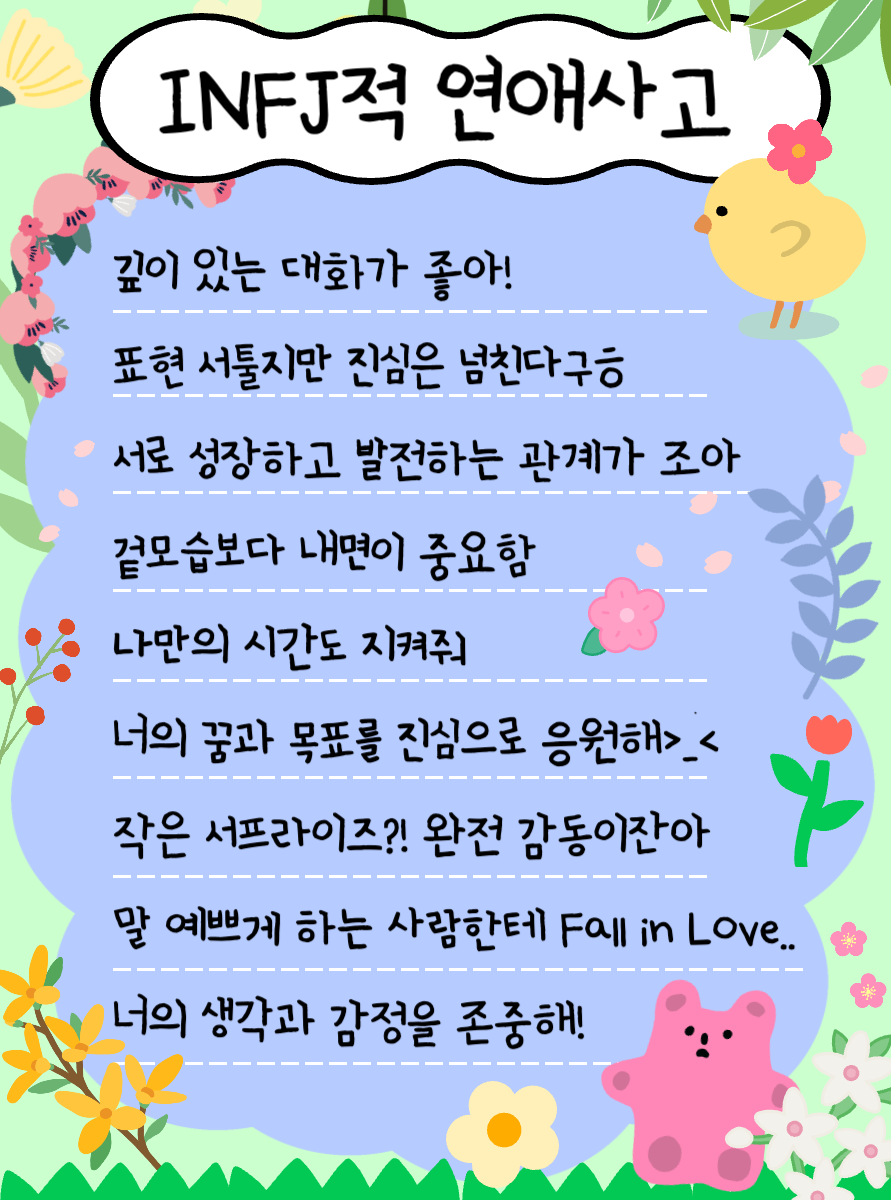 INFJ적 연애사고
깊이 있는 대화가 좋아!
표현 서툴지만 진심은 넘친다구흥
서로 성장하고 발전하는 관계가 조아
겉모습보다 내면이 중요함
나만의 시간도 지켜줘
너의 꿈과 목표를 진심으로 응원해>_<
작은 서프라이즈?! 완전 감동이잔아
말 예쁘게 하는 사람한테 Fall in Love..
너의 생각과 감정을 존중해!